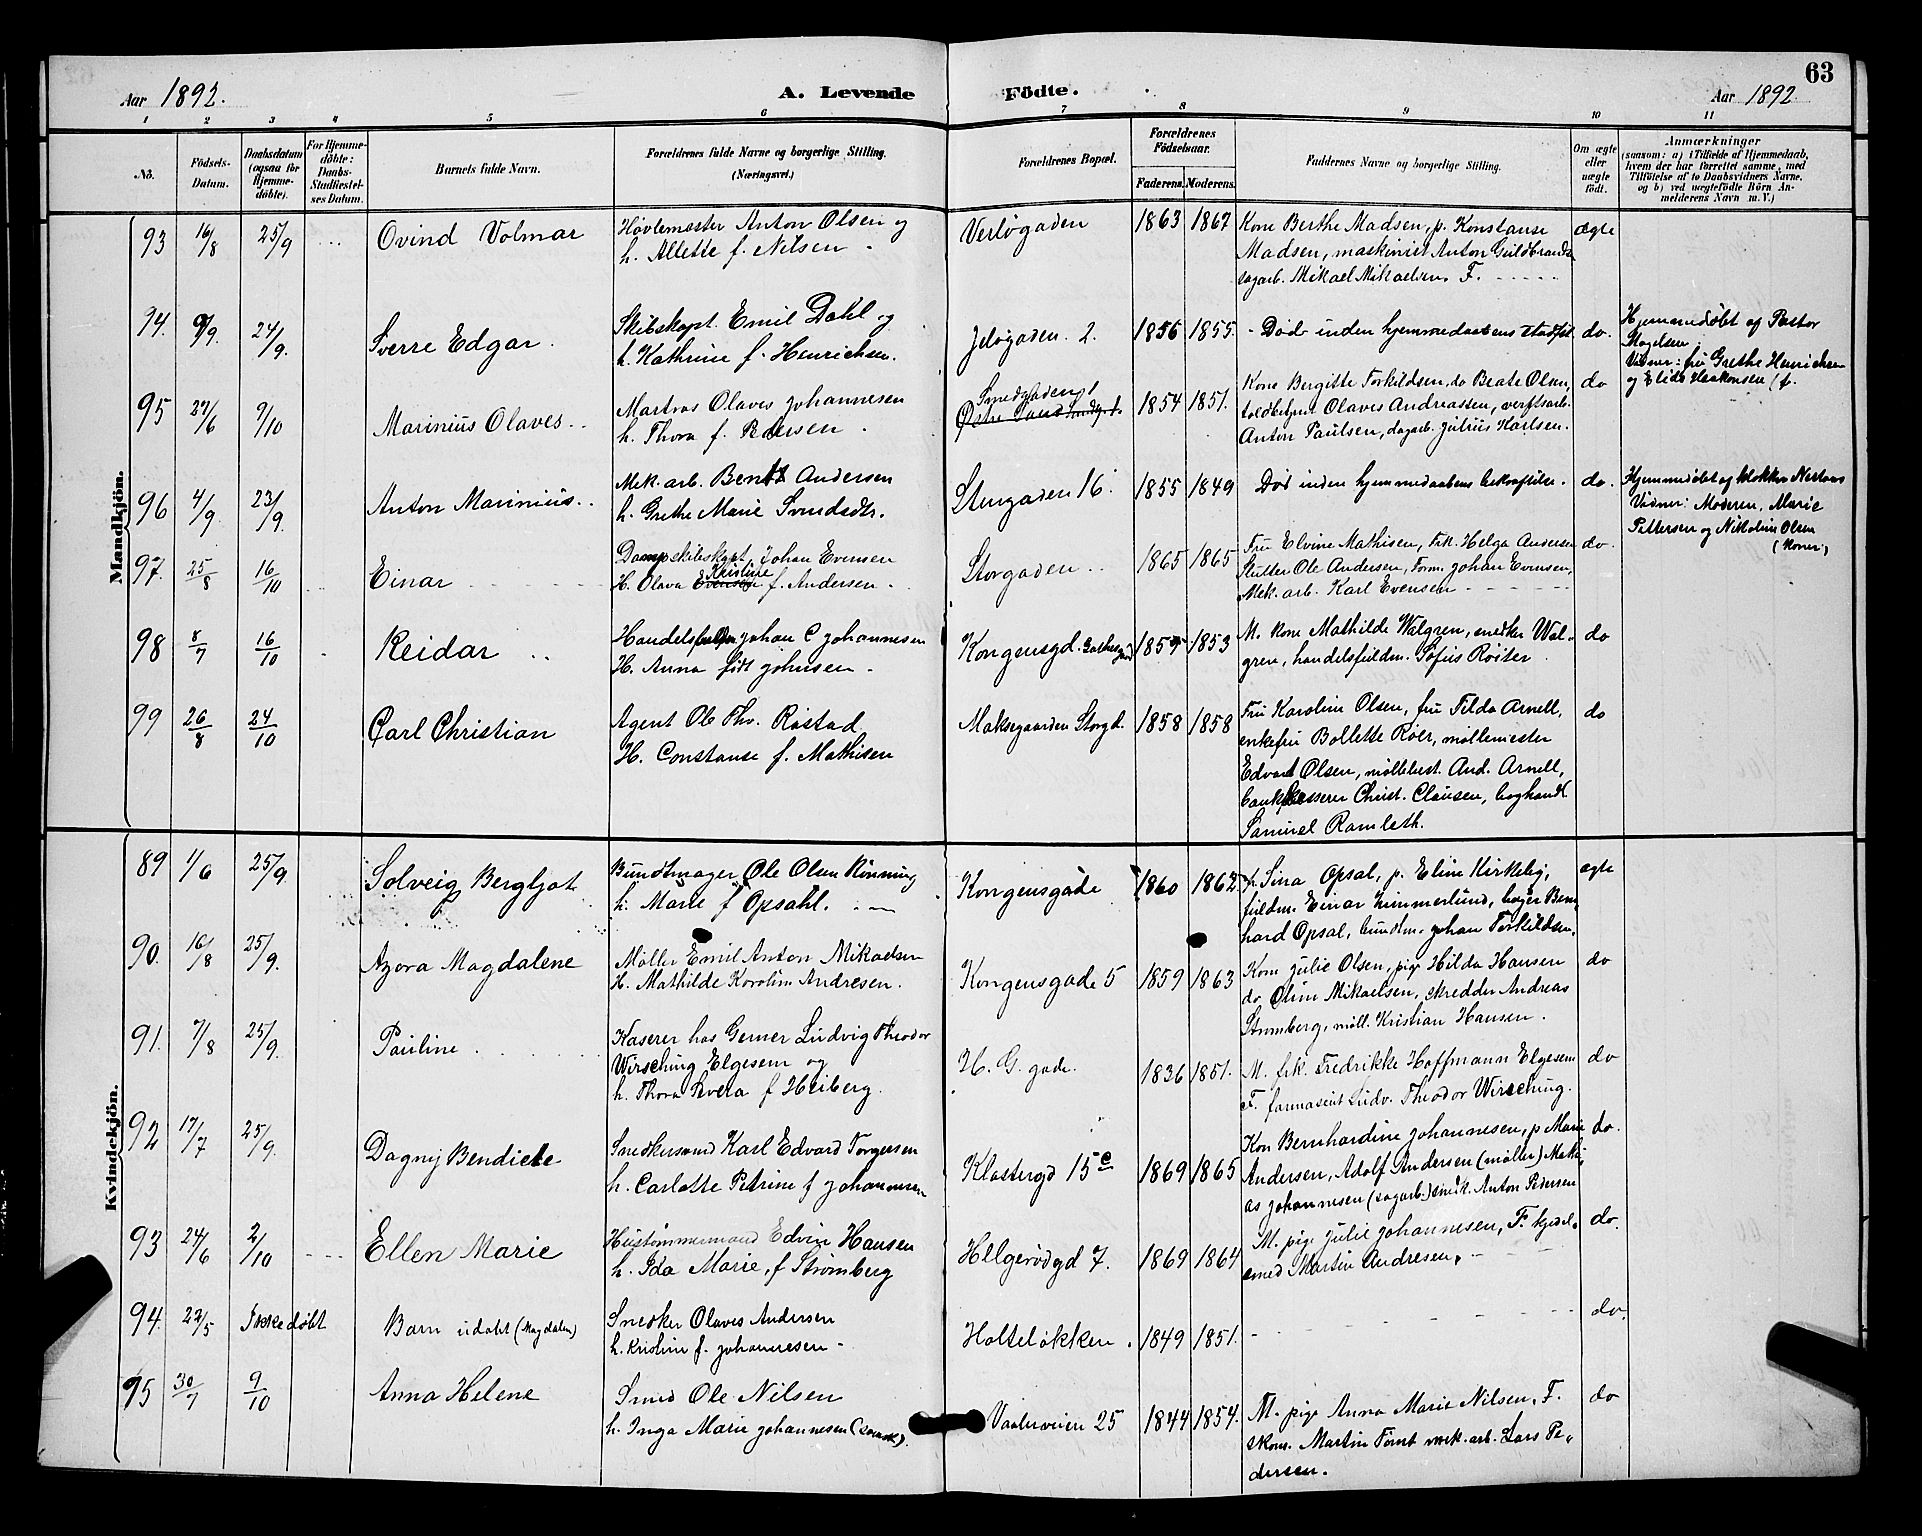 63
Aar 1892.
A. Levende Födte.
Aar 1892.
1 2 3 4 5 6 7 8 9 10 11
No.
Födsels-Datum.
Daabsdatum (ogsaa for Hjemme-döbte).
For Hjemme-döbte: Daabs-Stadfæstel-ses Datum.
Barnets fulde Navn.
Forældrenes fulde Navne og borgerlige Stilling.
(Næringsvei.)
Forældrenes Bopæl.
Forældrenes Födselsaar.
Faderens. Moderens.
Faddernes Navne og borgerlige Stilling.
Om ægte eller uægte födt.
Anmærkninger
(saasom: a) i Tilfælde af Hjemmedaab,
hvem der har forrettet samme, med
Tilföielse af to Daabsvidners Navne,
og b) ved uægtefödte Börn An-
melderens Navn m. V.)
Mandkjön.
93 16/8 25/9 Ovind Volmar
Høvlemester Anton Olsen og
h. Allette f. Nilsen
Verlegaden 1863 1867
Kone Berthe Madsen, p. Konstanse
Madsen, maskinist Anton Guldbrands
sagarb. Mikael Mikaelsen. F.
ægte
94. 9/9. 24/9. Sverre Edgar.
Skibskapt. Emil Dahl og
h. Kathrine f. Henrichsen.
Jeløgaden. 2. 1856 1855.
- Død inden hjemmedaabens stadfst. do.
Hjemmedøbt af Pastor
Vidner: fru Grethe Henrichsen
og Elida Haakonsen
95 27/6 9/10 Marinius Olaves
Matros Olaves Johannesen
h. Thora f. Pedersen
Smedgaden
1854 1851.
Kone Bergitte Torkildsen, do Beate Olsen,
toldbetjent Olaves Andreassen, verftsarb.
Anton Paulsen, dagarb. Julius Karlsen.
do
96 4/9. 23/9. Anton Marinius
Mek. arb. Bernt Andersen
h. Grethe Marie Svendsdtr.
Stengaden 16 1855 1849
Død inden hjemmedaabens bekræftelse. do.
Hjemmedøbt af klokker
Vidner: Moderen, Marie
Pettersen og Nikoline Olsen
(koner)
97. 25/8 16/10 Einar
Dampskibskapt. Johan Evensen
Kristine
H. Olava Evensen f. Andersen
Storgaden 1865 1865
Fru Elvine Mathisen, Frk. Helga Andersen
Slutter Ole Andersen, Form. Johan Evensen,
Mek. arb. Karl Evensen
do.
98 8/7 16/10 Reidar
Handelsfuldm Johan C Johannesen
H. Anna født Johnsen
Kongensgd. 1857 1853
M. kone Mathilde Walgren, snedker Wal-
gren, handelsfuldm. Sofus Røiter
do
99 26/8 24/10 Carl Christian
Agent Ole Thv. Røstad
H. Constanse f. Mathisen
Maksegaarden Storgd. 1858 1858
Fru Karoline Olsen, fru Tilda Arnell,
enkefru Bollette Röer, møllemester
Edvard Olsen, møllebest. And. Arnell,
bankkasserer Christ. Clausen, boghandl
Samuel Ramleth.
do
Kvindekjön.
89 1/6 25/9. Solveig Bergljot
Bundtmager Ole Olsen Rönning
h. Marie f Opsahl.
Kongensgade 1860 1862
p. Sina Opsal, p. Eline Kirkelig,
fuldm. Einar Zimmerlund, bager Bern-
hard Opsal, bundtm. Johan Torkildsen.
ægte
90. 16/8 25/9. Azora Magdalene
Møller Emil Anton Mikaelsen
H. Mathilde Karoline Andresen.
Kongensgade 5 1859 1863
Kone Julie Olsen, pige Hilda Hansen
do Oline Mikaelsen, skredder Andreas
Strømberg, møll. Kristian Hansen.
do
91. 7/8 25/9. Pauline
Kaserer hos Gerner Ludvig Theodor
Wirsching Elgesem og
h. Thora Severa f Heiberg.
H. G. gade. 1836 1851.
M. frk. Fredrikke Hoffmann Elgesem
F. farmaseut Ludv. Theodor Wirsching.
do
92 17/7 25/9. Dagny Bendicte
Snedkersvend Karl Edvard Torgersen
h. Carlotte Petrine f Johannesen
Klostergd 15c 1869 1865
Kon Bernhardine Johannesen, p Marie
Andersen, Adolf Andersen (møller) Math-
as Johannesen (sagarb.) snedk. Anton Pedersen
do.
93 24/6 2/10 Ellen Marie
Hustømmermand Edvin Hansen
h. Ida Marie, f Strömberg
Helgerødgd 7. 1869 1864
M. pige Julie Johannesen, F. kjedel-
smed Martin Andresen.
do.
94. 22/5 Ikke døbt Barn udøbt (Magdalen)
Snedker Olaves Andersen
h. Kristine f. Johannesen
Holteløkken. 1849 1851.
do.
95 30/7 9/10 Anna Helene
Smed Ole Nilsen
h. Inga Marie Johannesen (svensk).
Vaalerveien 25 1844 1854.
M. pige Anna Marie Nilsen, F.
skom. Martin Tomt mek. arb. Lars Pe-
dersen.
do